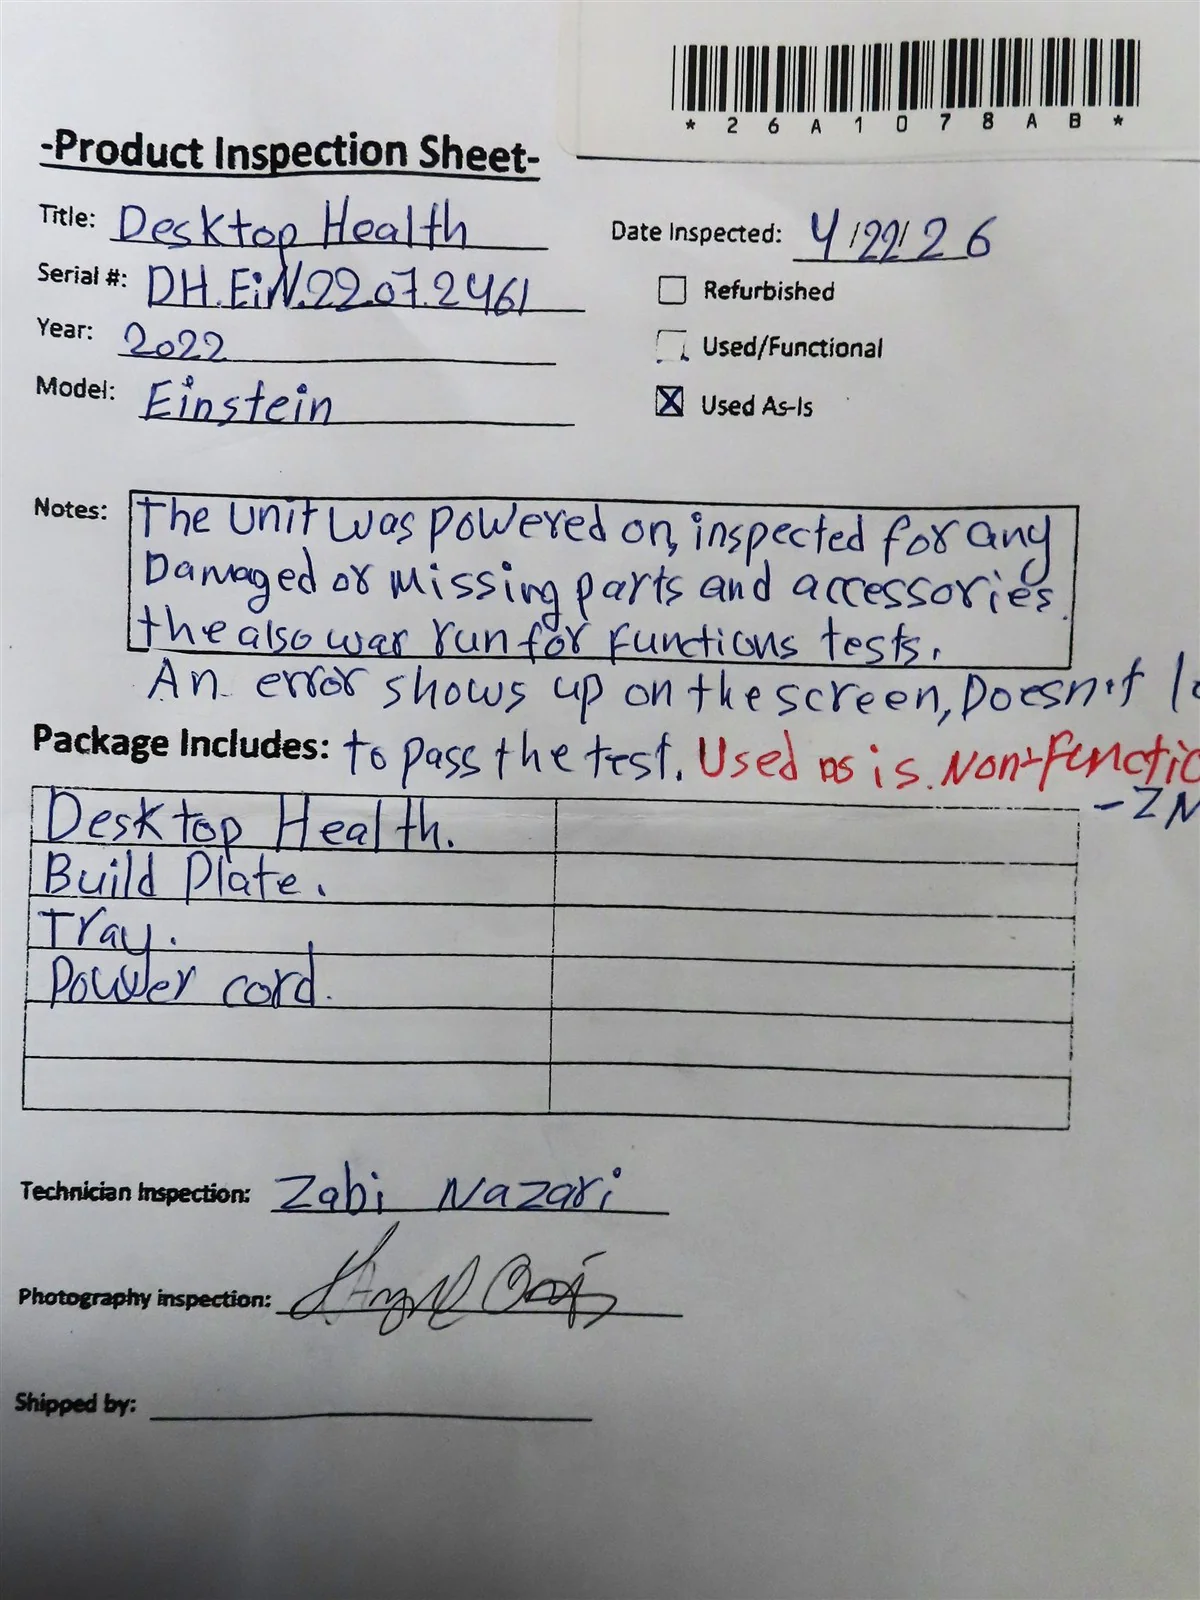 * 2 6 A 1 0 7 8 A B *
-Product Inspection Sheet-
Title: Desktop Health
Date Inspected: 4/22/26
Serial #: DH.EiN.22.07.2461
Refurbished
Year: 2022
Used/Functional
Model: Einstein
Used As-Is
Notes: The unit was powered on, inspected for any
Damaged or missing parts and accessories.
the also was run for functions tests.
An error shows up on the screen, Doesn't
Package Includes: to pass the test. Used as is. Non-Functio
-ZN
Desktop Health.
Build Plate.
Tray.
Power cord.
Technician Inspection: Zabi Nazari
Photography inspection:
Shipped by: